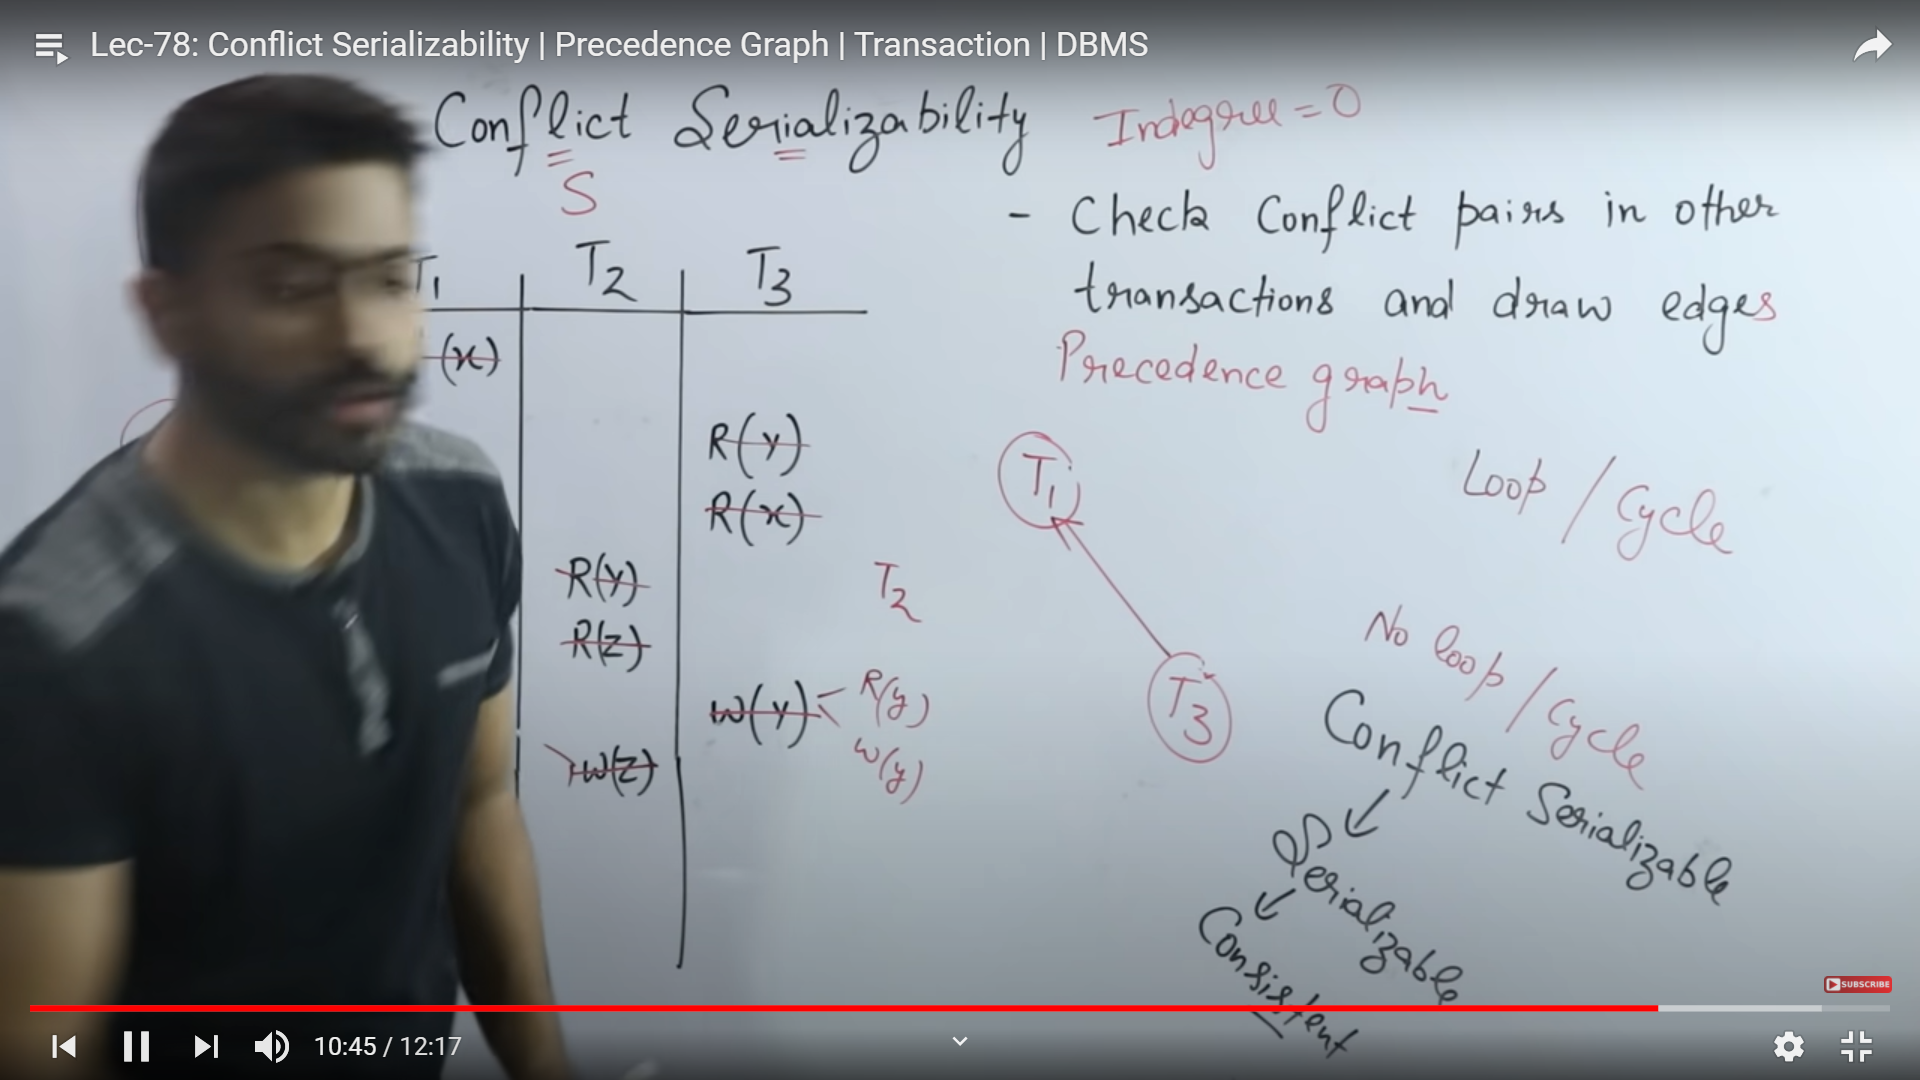 Lec-78: Conflict Serializability | Precedence Graph | Transaction | DBMS
Conflict Serializability
Indegree = 0
S
- Check Conflict pairs in other
transactions and draw edges
Precedence graph
T1 T2 T3
(x)
R(y)
R(x)
R(y)
R(z)
W(y)
W(z)
T2
R(y)
W(y)
T1
T3
Loop / Cycle
No loop / Cycle
Conflict Serializable
Serializable
Consistent
SUBSCRIBE
10:45 / 12:17